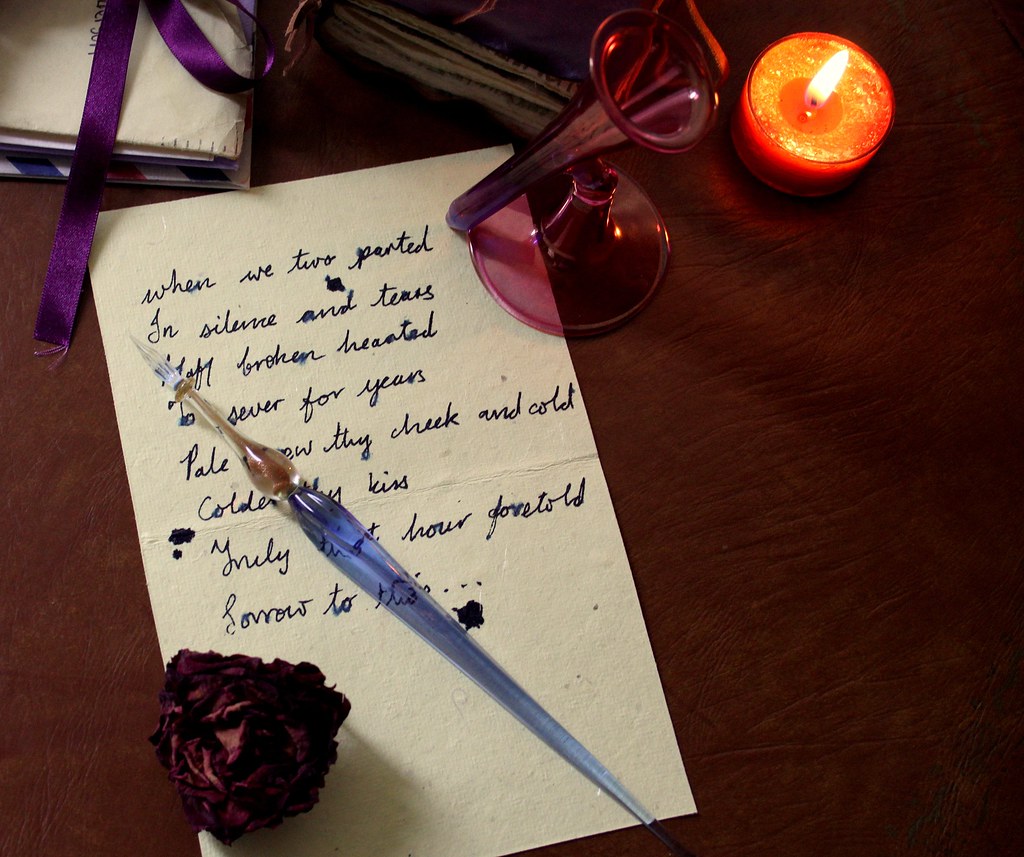 when we two parted
In silence and tears
Half broken hearted
To sever for years
Pale thy cheek and cold
Colder thy kiss
Truly that hour foretold
Sorrow to this....